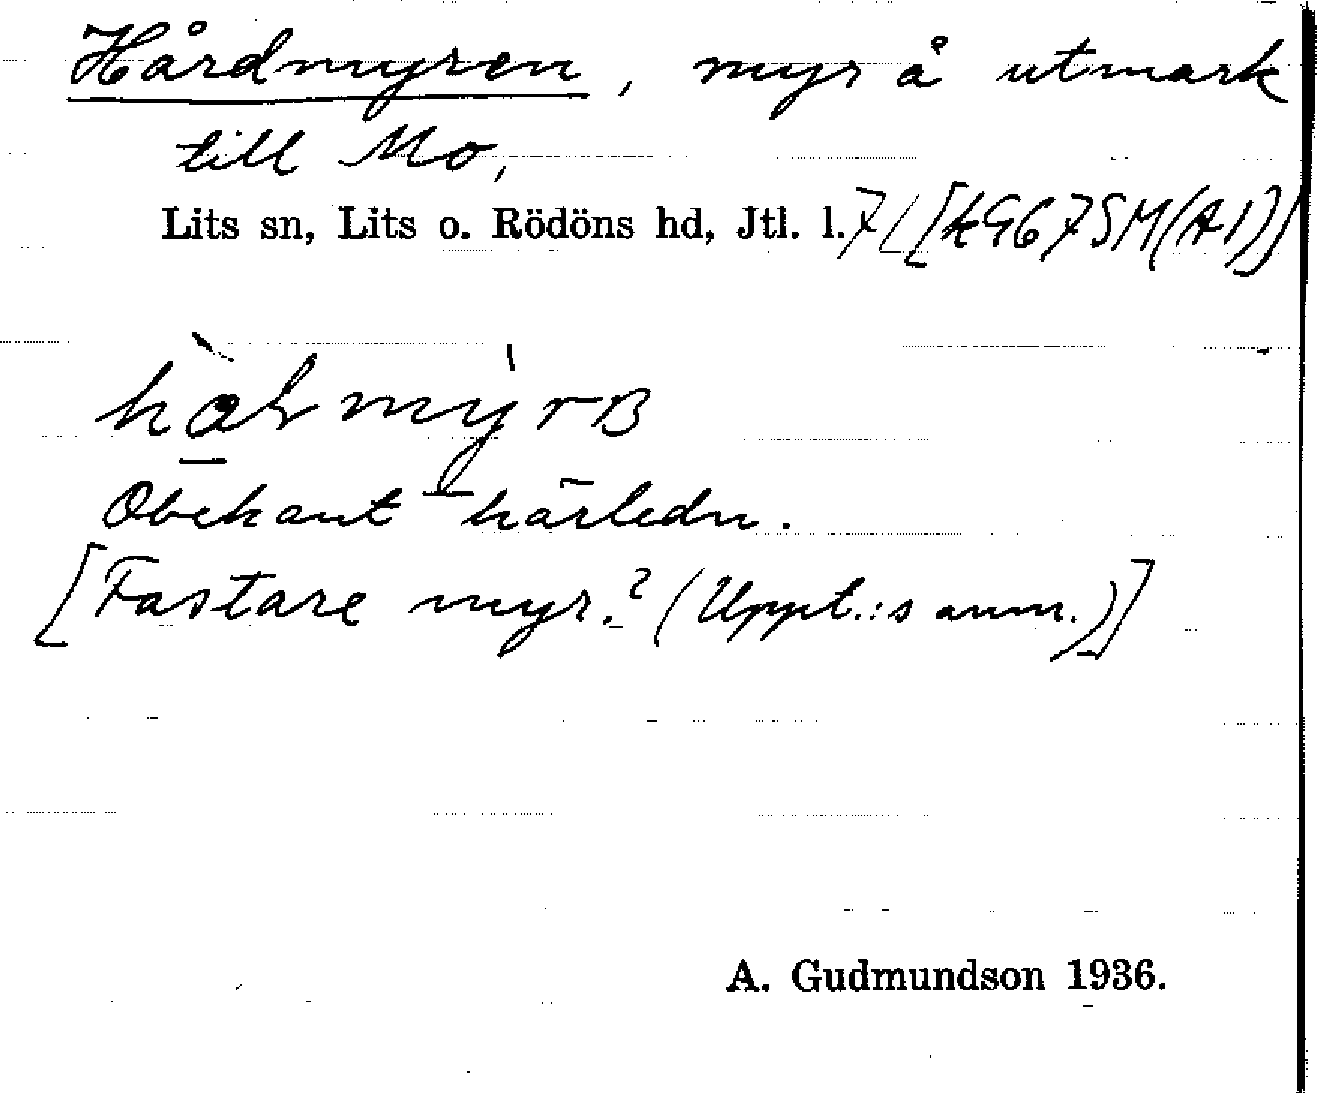 Hårdmyren, myr å utmark
till Mo,
Lits sn, Lits o. Rödöns hd, Jtl. l. 7/[k9675M(A1)]
Obekant härledn.
[Fastare myr.? (Uppt.:s anm.)]
A. Gudmundson 1936.